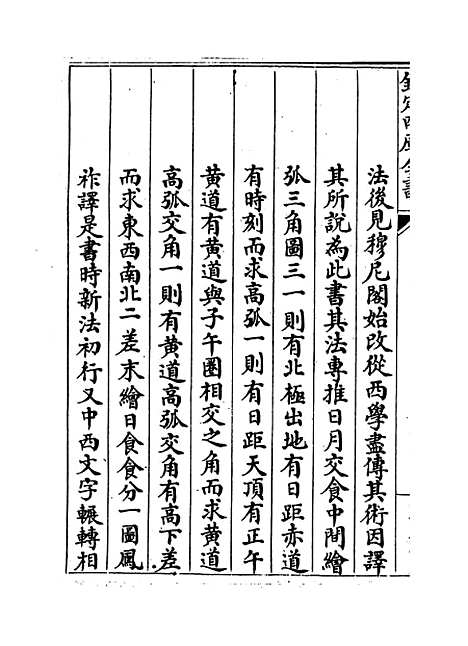 欽定四庫全書
法後見穆尼閣始改從西學盡傳其術因譯
其所說為此書其法專推日月交食中間繪
弧三角圖三一則有北極出地有日距赤道
有時刻而求高弧一則有日距天頂有正午
黄道有黄道與子午圈相交之角而求黄道
高弧交角一則有黄道高弧交角有高下差
而求東西南北二差末繪日食食分一圖鳳
祚譯是書時新法初行又中西文字輾轉相